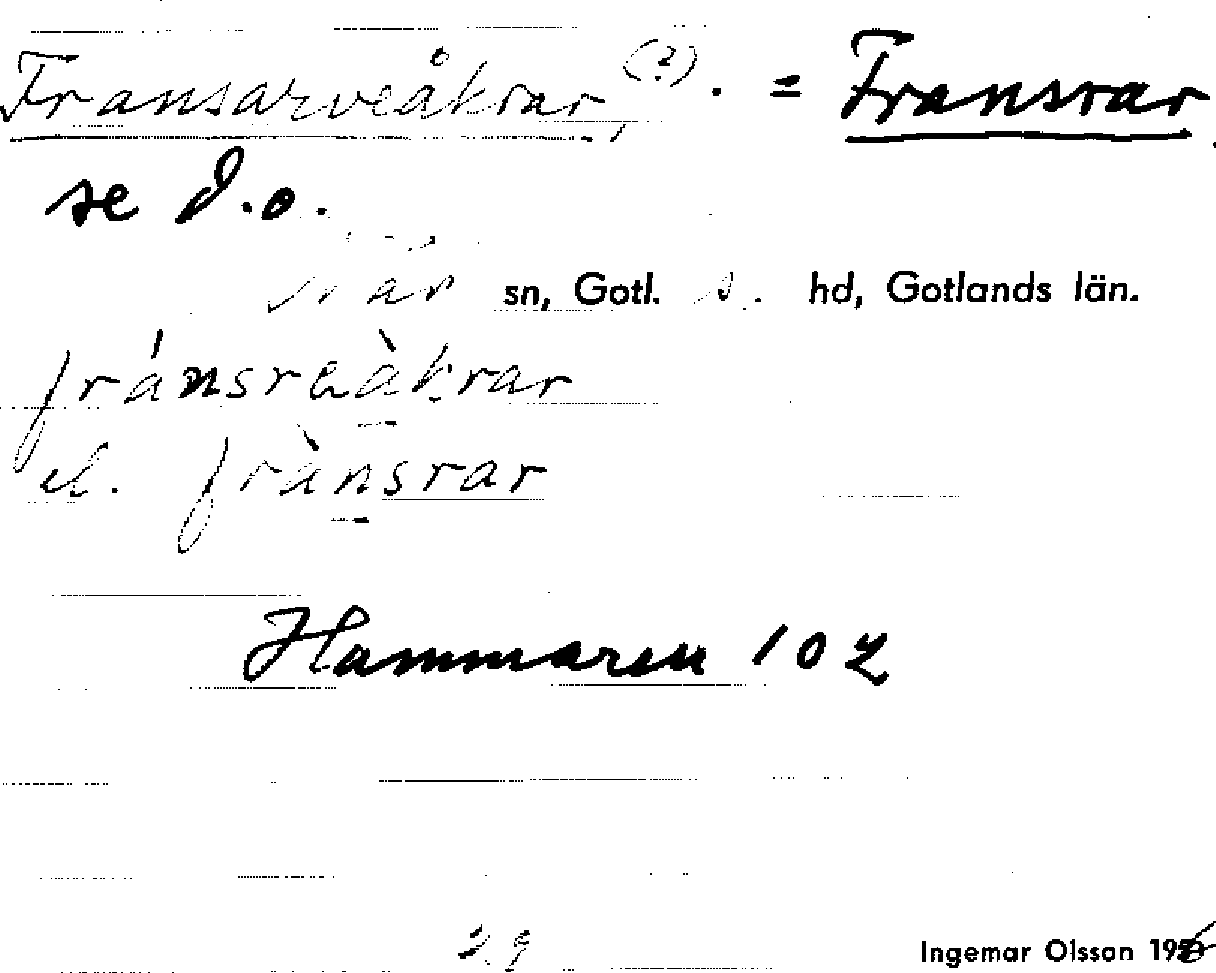 Fransarveåkrar, (?). = Fransrar
se d.o.
När sn, Gotl. s. hd, Gotlands län.
fránsreàkrar
el. frànsrar
Hammaren 102
Ingemar Olsson 19